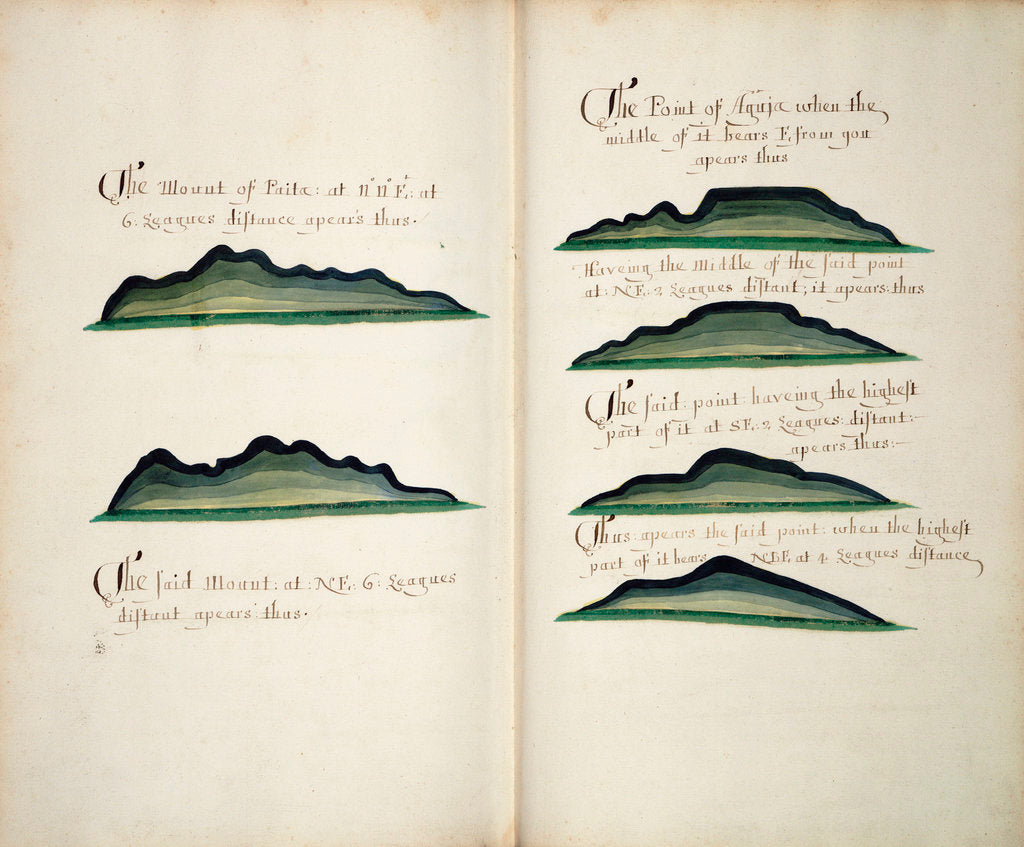 The Mount of Paita: at N°N°E: at
6: Leagues distance apears thus.
The said Mount: at: NE: 6: Leagues
distant apears: thus.
The Point of Aguja when the
middle of it bears E. from you
apears thus
Haveing the Middle of the said point
at: NE: 2 Leagues distant; it apears: thus
The said: point: haveing the highest
part of it at SE: 2 Leagues: distant:
apears thus:
Thus: apears the said point: when the highest
part of it bears NBE at 4 Leagues distance